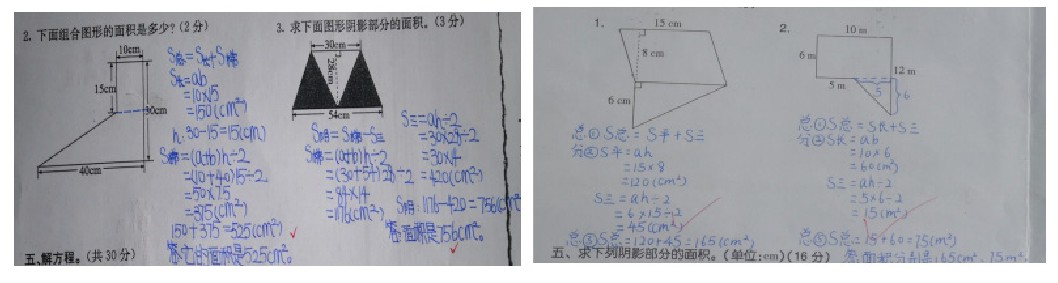 2. 下面组合图形的面积是多少?(2分)
10cm
15cm
30cm
40cm
S总=S长+S梯
S长=ab
=10×15
=150(cm²)
h:30-15=15(cm)
S梯=(a+b)h÷2
=(10+40)15÷2
=50×7.5
=375(cm²)
150+375=525(cm²)
答:它的面积是525cm².
五、解方程。(共30分)
3. 求下面图形阴影部分的面积。(3分)
30cm
28cm
54cm
S阴=S梯-S三
S梯=(a+b)h÷2
=(30+54)28÷2
=84×14
=1176(cm²)
S三=ah÷2
=30×28÷2
=30×14
=420(cm²)
S阴:1176-420=756(cm²
答:面积是756cm²。
1.
15 cm
8 cm
6 cm
总①S总=S平+S三
分②S平=ah
=15×8
=120(cm²)
S三=ah÷2
=6×15÷2
=45(cm²)
总③S总=120+45=165(cm²)
2.
10 m
6 m
12 m
5 m
5
6
总①S总=S长+S三
分②S长=ab
=10×6
=60(m²)
S三=ah÷2
=5×6÷2
=15(m²)
总③S总=15+60=75(m²)
答:面积分别是165cm²、75m².
五、求下列阴影部分的面积。(单位:cm)(16分)